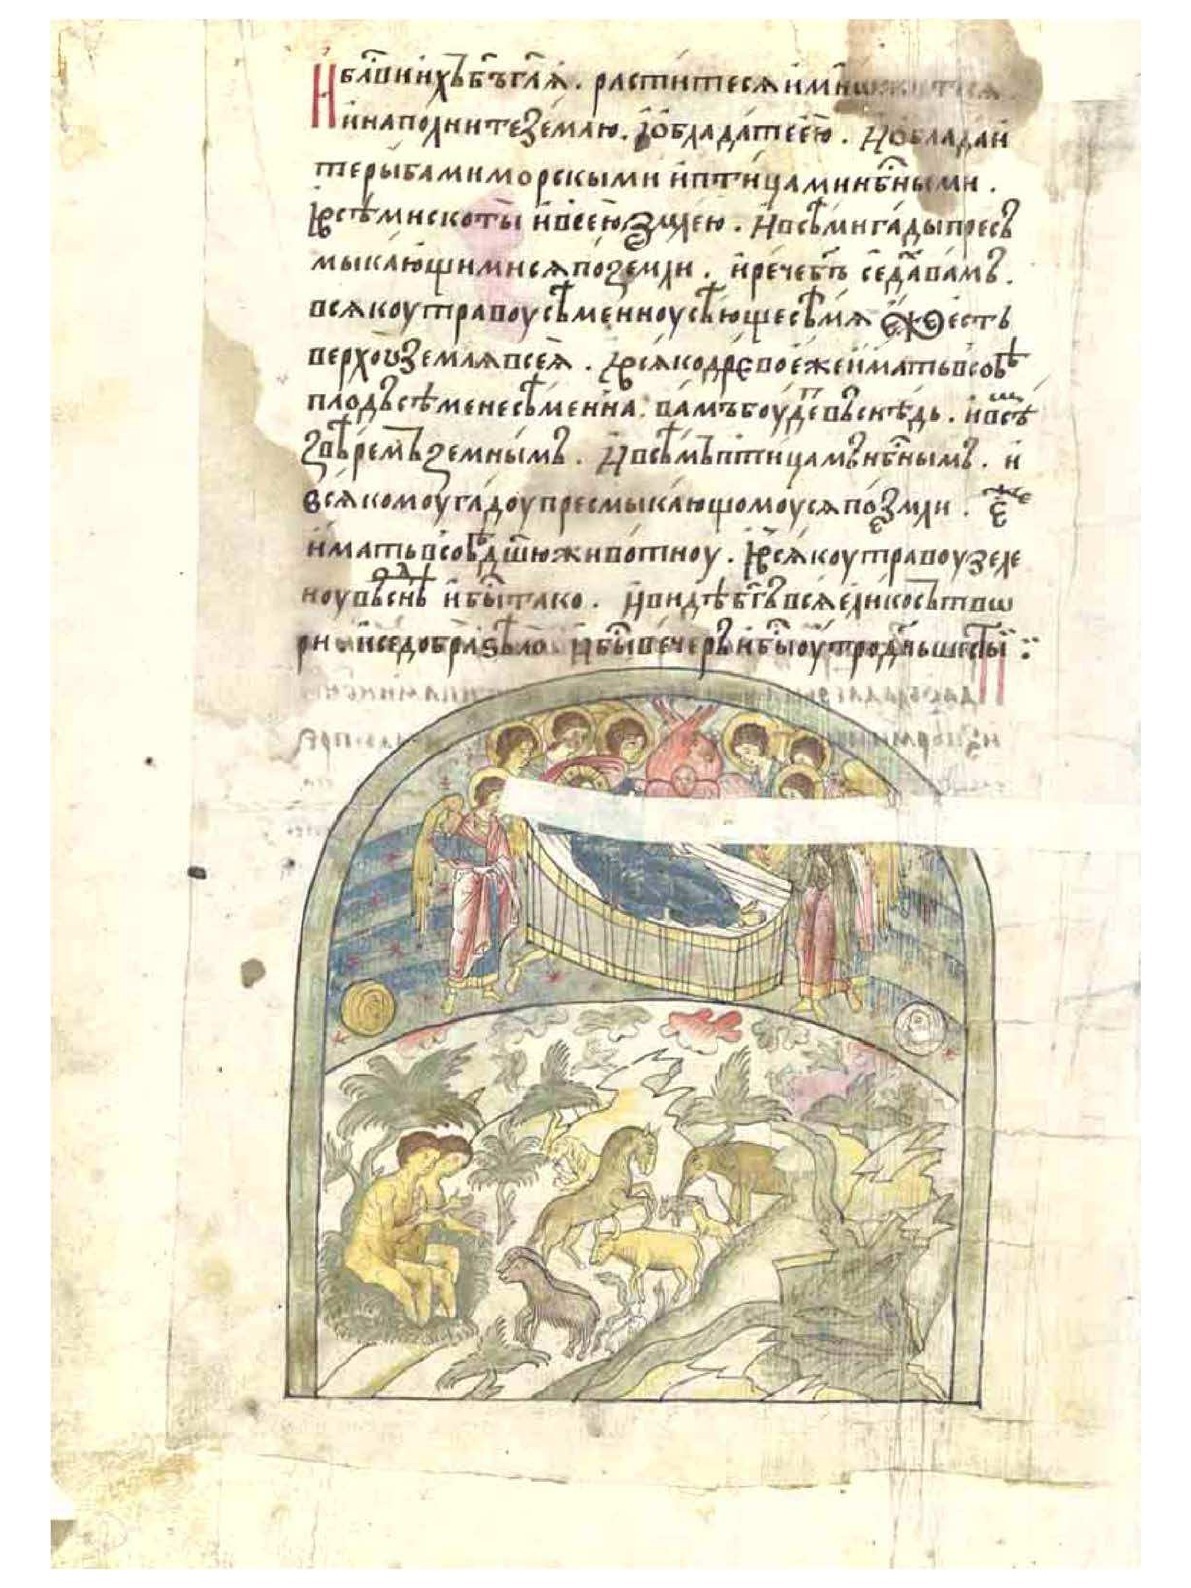 И блⷭ҇ви ихъ бг҃ъ гл҃ѧ . раститесѧ и мн
и наполните землю . и ѻбладаите ею . И ѻбладаи
те рыбами морскыми и птицами нбⷭ҇ными .
И всѣми скоты и всею землею . И всѣми гады пресⸯ
мыкающимисѧ по земли . и рече бг҃ъ се дахъ вамъ .
всѧкоу травоу сѣменноу сѣющее сѣмѧ еже есть
верхоу землѧ всеѧ . И всѧко древо еже имать в собѣ
плодъ сѣмене сѣменна . вамъ боудеⷮ въ снѣдь . и всѣⷨ
звѣремъ земнымъ . И всѣмъ птицамъ нбⷭ҇нымъ . и
всѧкомоу гадоу пресмыкающомоусѧ по земли . еже
имать в собѣ дш҃ю животноу . И всѧкоу травоу зеле
ноу въ снѣдь и бысть тако . И видѣ бг҃ъ всѧ елико сътвѡ
ри и се добра ѕѣло и быⷭ҇ вечеръ и быⷭ҇ оутро дн҃ь шестыи :·